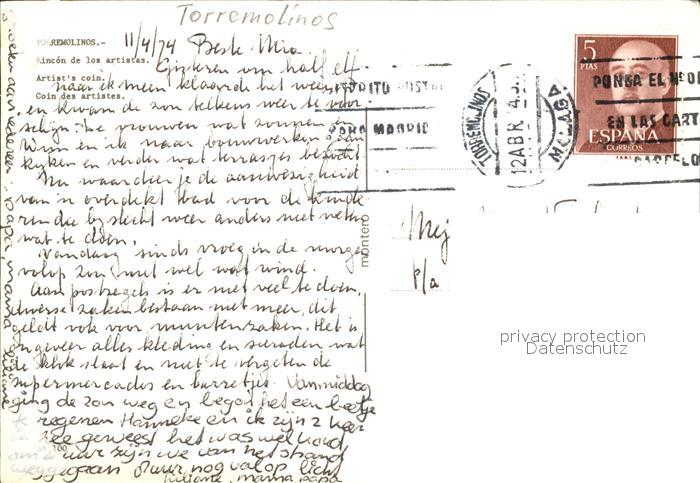 Torremolinos
TORREMOLINOS.-
Rincón de los artistas.
Artist's coin.
Coin des artistes.
11/4/74 Beste Mia
Gisteren van half elf
naar ik meen klaarde het weer
en kwam de zon telkens weer te voor
schijn. De vrouwen wat zonnen en
Wim en ik naar bouwwerken gaan
kijken en verder wat terrasjes bezocht.
Nu waardeer je de aanwezigheid
van 'n overdekt bad voor de kinde
ren die bij slecht weer anders niet weten
wat te doen.
Vandaag sinds vroeg in de morgen
volop zon, met wel wat wind.
Aan postzegels is er niet veel te doen,
diverse zaken bestaan niet meer, dit
geldt ook voor muntenzaken. Het is
ongeveer alles kleding en sieraden wat
de klok slaat en niet te vergeten de
supermercados en barretjes. Vanmiddag
ging de zon weg en begon het een beetje
te regenen Hanneke en ik zijn 2 keer
in zee geweest het was wel koud,
om uur zijn we van het strand
weggegaan nog volop licht
mama papa
papa, mama
montero
Mej
p/a
5
PTAS
ESPAÑA
CORREOS
PARA MADRID
TORREMOLINOS
12 ABR
MALAGA
PONGA EL Nº
EN LAS CART
BARCELO
privacy protection
Datenschutz